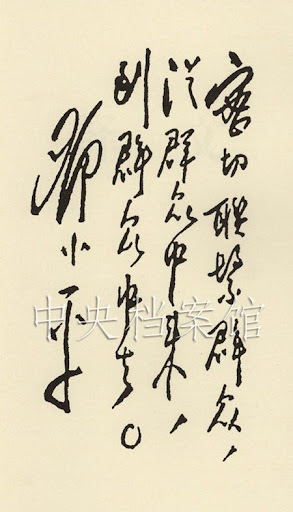 密切联繫群众，
从群众中来，
到群众中去。
邓小平
中央档案馆